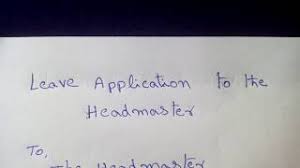 Leave Application to the
Headmaster
To,
The Headmaster